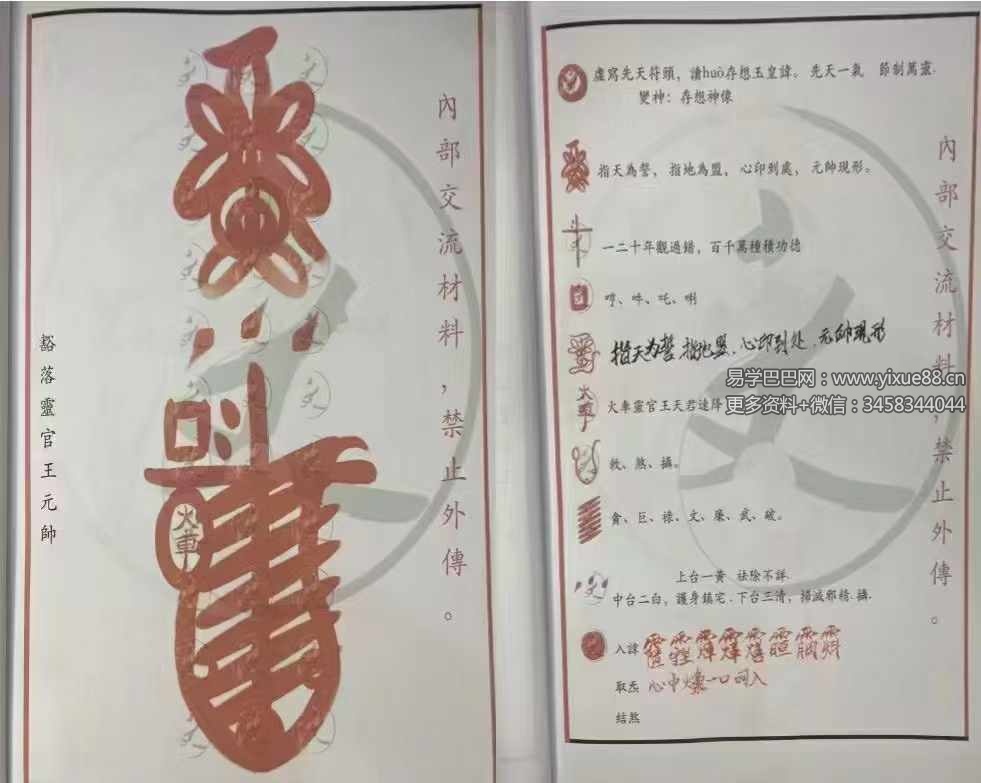 內部交流材料，禁止外傳。
豁落靈官王元帥
火車
虛寫先天符頭，讀huò存想玉皇諱。先天一氣 節制萬靈.
變神：存想神像
指天為誓，指地為盟，心印到處，元帥現形。
一二十年觀過錯，百千萬種積功德
哼、吽、吒、唎
指天为誓.指地盟.心印到处.元帥現形
易学巴巴网：www.yixue88.cn
火車
火車靈官王天君速降
更多资料+微信：3458344044
敕、煞、攝。
貪、巨、祿、文、廉、武、破。
上台一黃 祛除不詳.
中台二白，護身鎮宅.下台三清，掃滅邪精.攝.
入諱
取炁
結煞
內部交流材料，禁止外傳。